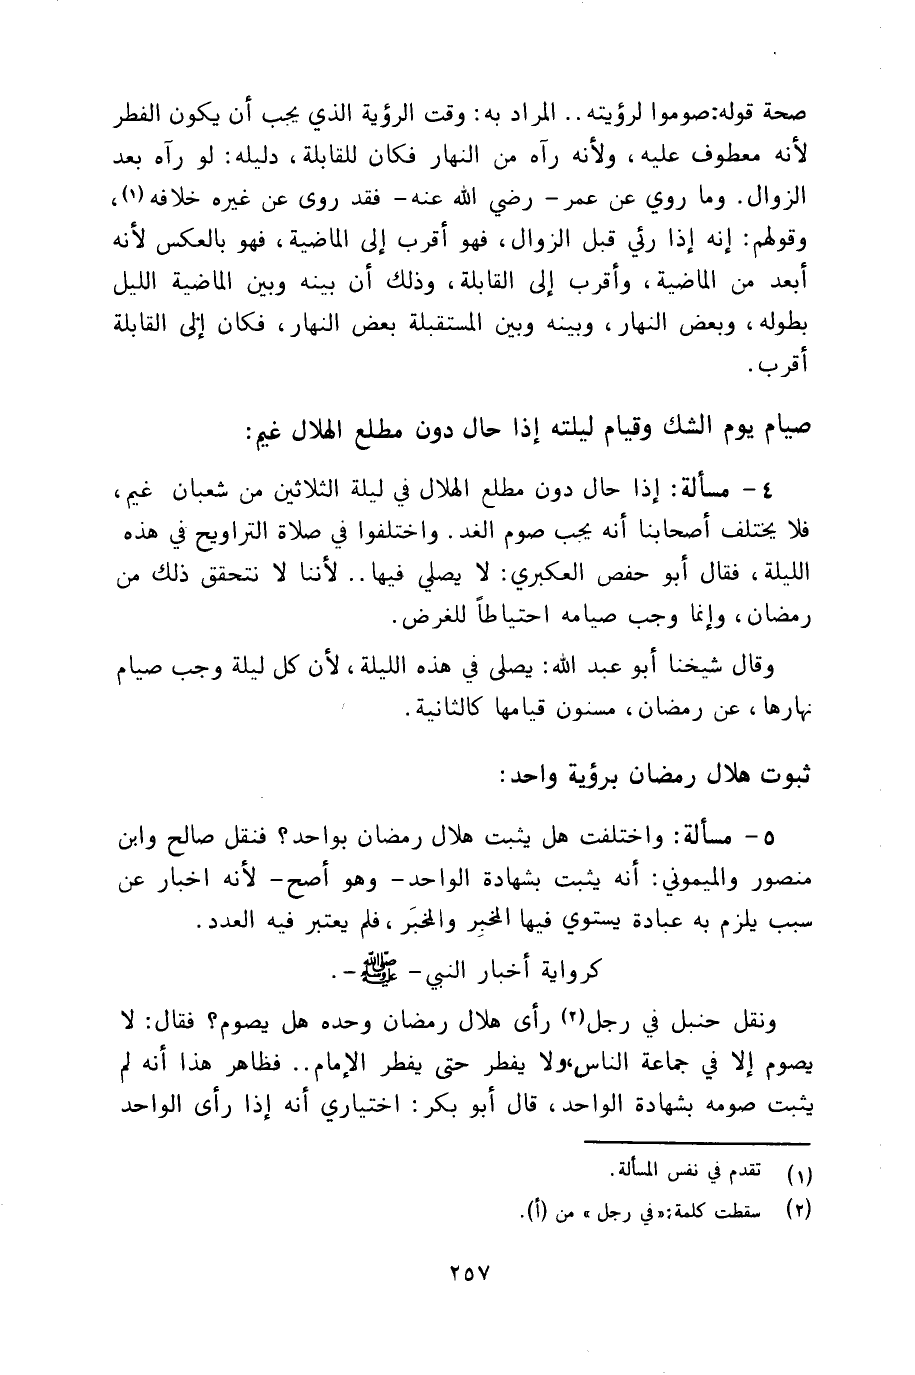 صحة قوله:صوموا لرؤيته.. المراد به: وقت الرؤية الذي يجب أن يكون الفطر
لأنه معطوف عليه، ولأنه رآه من النهار فكان للقابلة، دليله: لو رآه بعد
الزوال. وما روي عن عمر- رضي الله عنه- فقد روى عن غيره خلافه(١)،
وقولهم: إنه إذا رئي قبل الزوال، فهو أقرب إلى الماضية، فهو بالعكس لأنه
أبعد من الماضية، وأقرب إلى القابلة، وذلك أن بينه وبين الماضية الليل
بطوله، وبعض النهار، وبينه وبين المستقبلة بعض النهار، فكان إلى القابلة
أقرب.
صيام يوم الشك وقيام ليلته إذا حال دون مطلع الهلال غيم:
٤- مسألة: إذا حال دون مطلع الهلال في ليلة الثلاثين من شعبان غيم،
فلا يختلف أصحابنا أنه يجب صوم الغد. واختلفوا في صلاة التراويح في هذه
الليلة، فقال أبو حفص العكبري: لا يصلي فيها.. لأننا لا نتحقق ذلك من
رمضان، وإنما وجب صيامه احتياطاً للغرض.
وقال شيخنا أبو عبد الله: يصلى في هذه الليلة، لأن كل ليلة وجب صيام
نهارها، عن رمضان، مسنون قيامها كالثانية.
ثبوت هلال رمضان برؤية واحد:
٥- مسألة: واختلفت هل يثبت هلال رمضان بواحد؟ فنقل صالح وابن
منصور والميموني: أنه يثبت بشهادة الواحد- وهو أصح- لأنه اخبار عن
سبب يلزم به عبادة يستوي فيها المخبِر والمخبَر، فلم يعتبر فيه العدد.
كرواية أخبار النبي- ﷺ-.
ونقل حنبل في رجل(٢) رأى هلال رمضان وحده هل يصوم؟ فقال: لا
يصوم إلا في جماعة الناس،ولا يفطر حتى يفطر الإمام.. فظاهر هذا أنه لم
يثبت صومه بشهادة الواحد، قال أبو بكر: اختياري أنه إذا رأى الواحد
(١) تقدم في نفس المسألة.
(٢) سقطت كلمة:«في رجل» من (أ).
٢٥٧